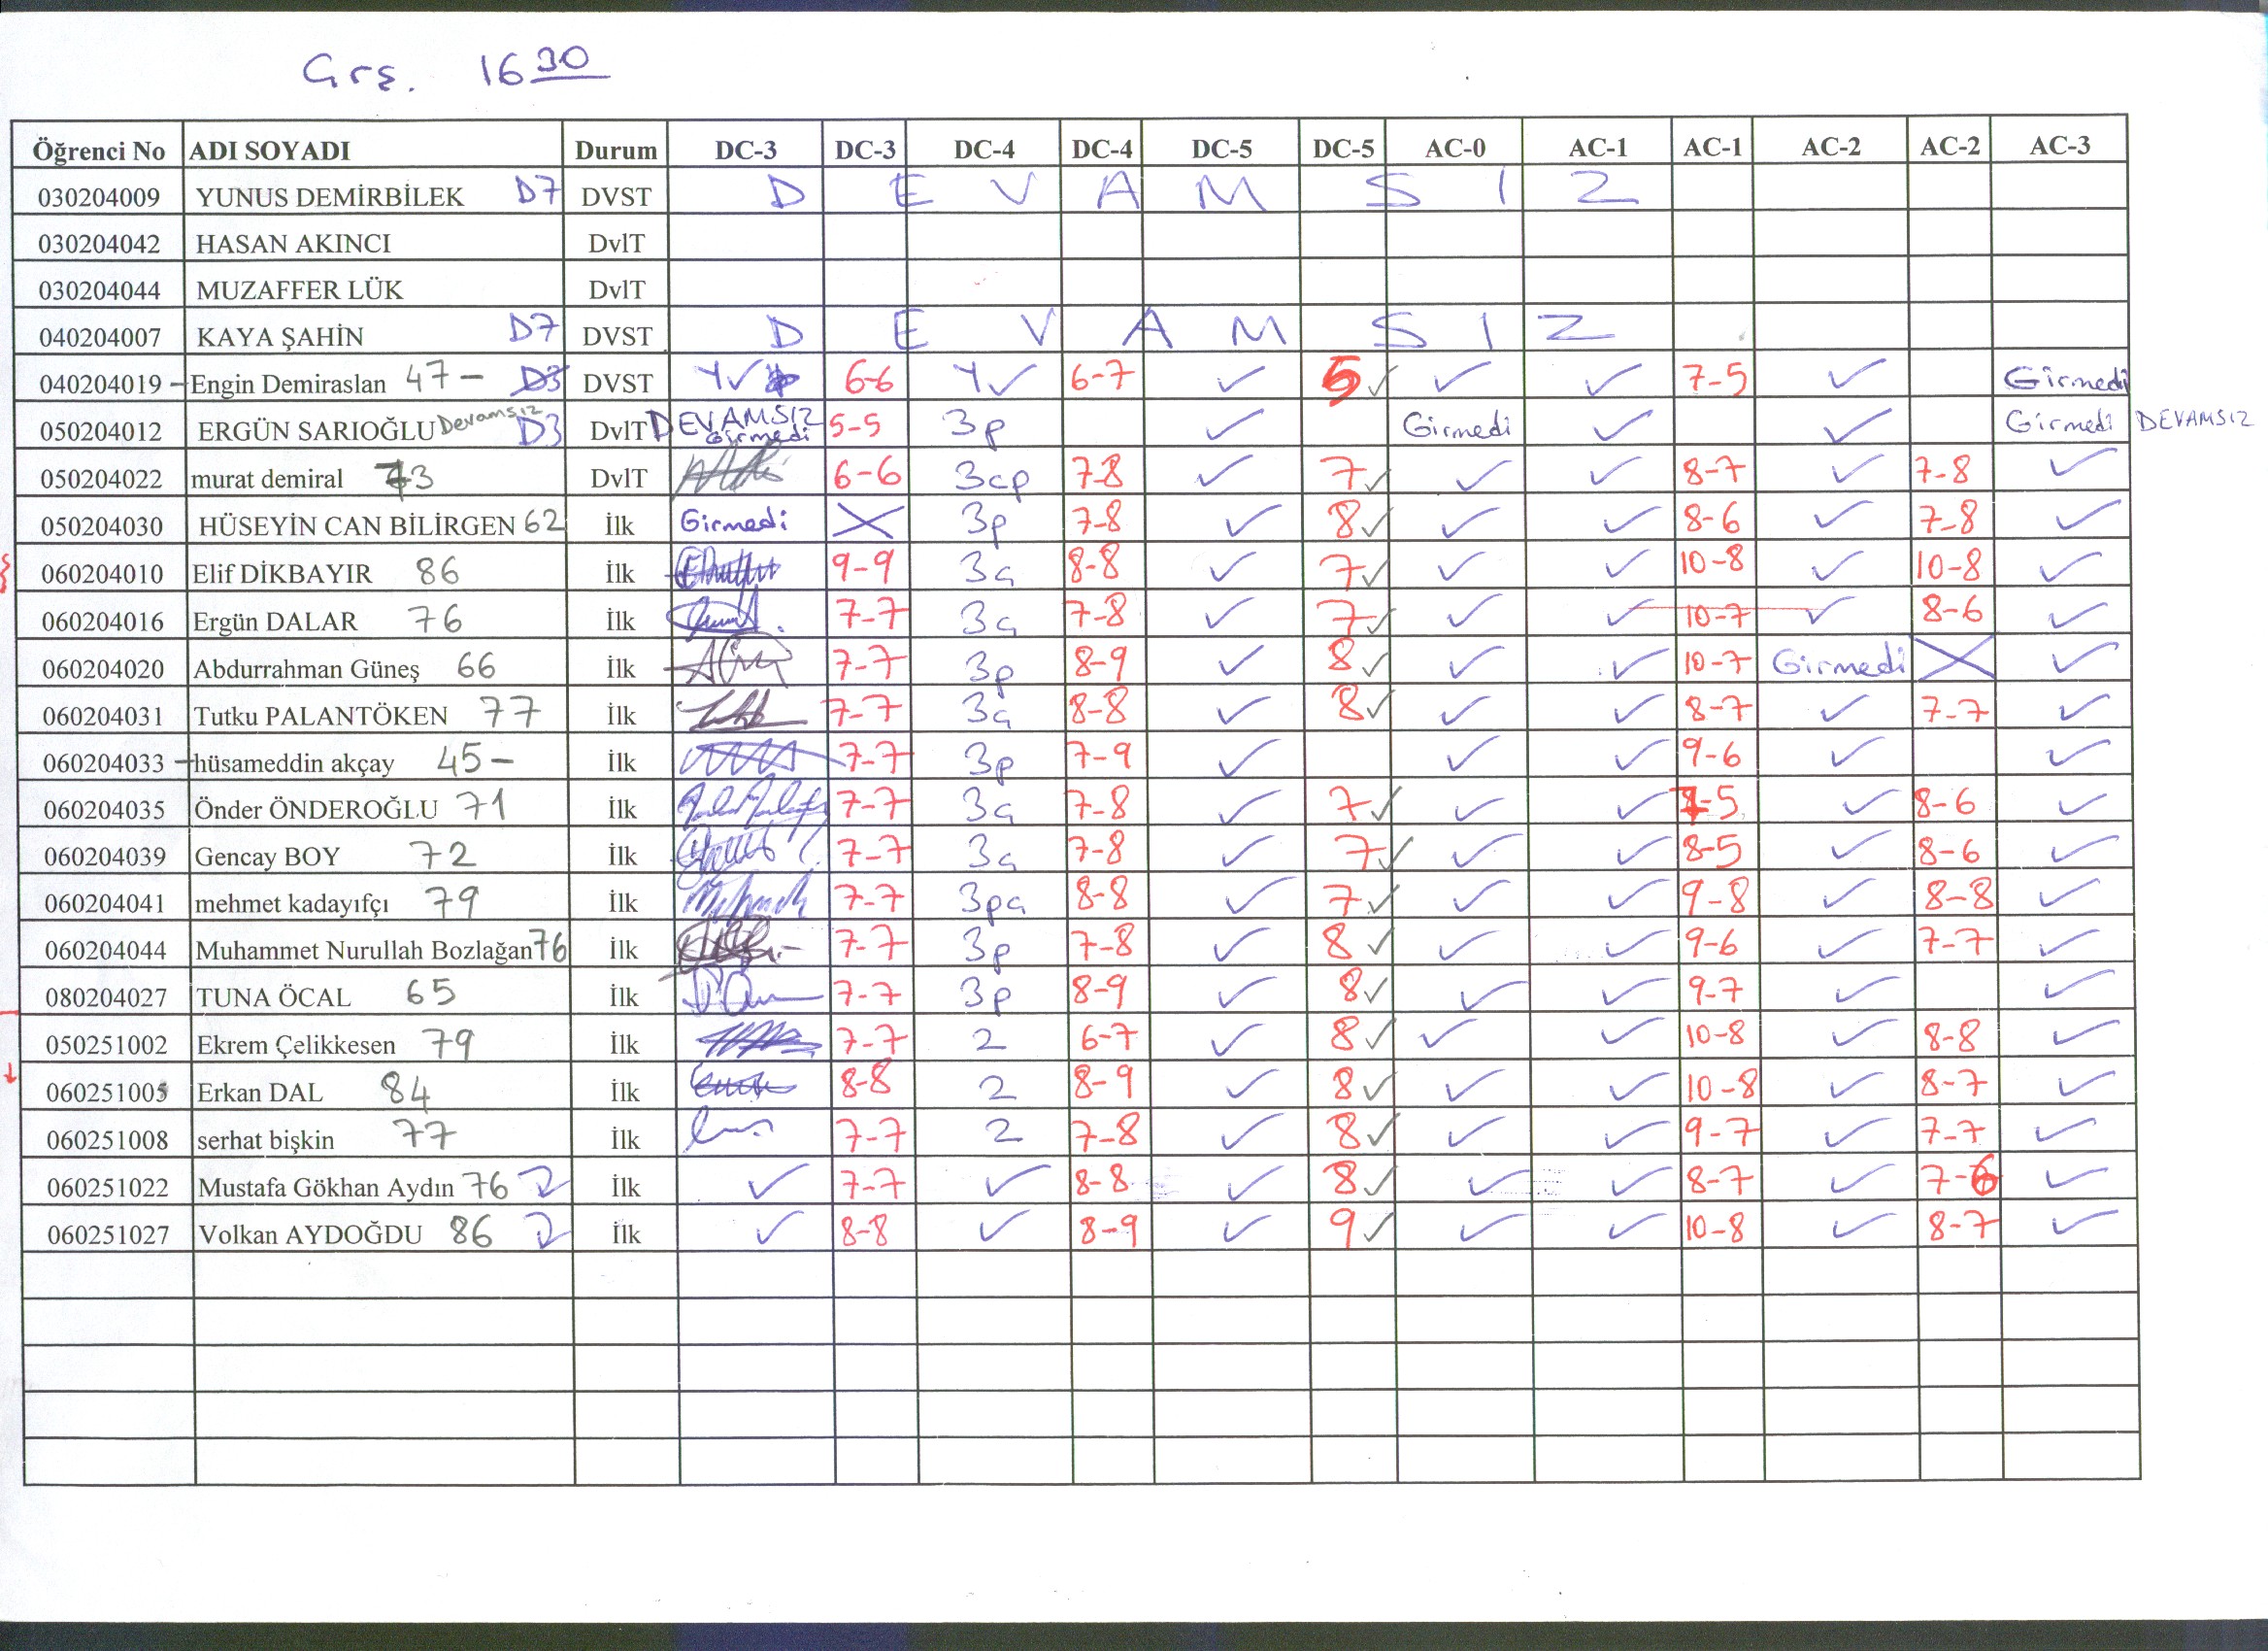 Grş. 16 30
Öğrenci No ADI SOYADI Durum DC-3 DC-3 DC-4 DC-4 DC-5 DC-5 AC-0 AC-1 AC-1 AC-2 AC-2 AC-3
030204009 YUNUS DEMİRBİLEK D7 DVST D E V A M S I Z
030204042 HASAN AKINCI DvlT
030204044 MUZAFFER LÜK DvlT
040204007 KAYA ŞAHİN D7 DVST D E V A M S I Z
040204019 - Engin Demiraslan 47 - D3 DVST Y ✓ 6-6 Y ✓ 6-7 ✓ 5 ✓ ✓ ✓ 7-5 ✓ Girmedi
050204012 ERGÜN SARIOĞLU Devamsız D3 DvlT DEVAMSIZ Girmedi 5-5 3p ✓ Girmedi ✓ ✓ Girmedi DEVAMSIZ
050204022 murat demiral 73 DvlT 6-6 3cp 7-8 ✓ 7 ✓ ✓ ✓ 8-7 ✓ 7-8 ✓
050204030 HÜSEYİN CAN BİLİRGEN 62 İlk Girmedi X 3p 7-8 ✓ 8 ✓ ✓ ✓ 8-6 ✓ 7-8 ✓
060204010 Elif DİKBAYIR 86 İlk 9-9 3a 8-8 ✓ 7 ✓ ✓ ✓ 10-8 ✓ 10-8 ✓
060204016 Ergün DALAR 76 İlk 7-7 3a 7-8 ✓ 7 ✓ ✓ ✓ 10-7 ✓ 8-6 ✓
060204020 Abdurrahman Güneş 66 İlk 7-7 3p 8-9 ✓ 8 ✓ ✓ ✓ 10-7 Girmedi X ✓
060204031 Tutku PALANTÖKEN 77 İlk 7-7 3a 8-8 ✓ 8 ✓ ✓ ✓ 8-7 ✓ 7-7 ✓
060204033 - hüsameddin akçay 45 - İlk 7-7 3p 7-9 ✓ ✓ ✓ 9-6 ✓ ✓
060204035 Önder ÖNDEROĞLU 71 İlk 7-7 3a 7-8 ✓ 7 ✓ ✓ ✓ 7-5 ✓ 8-6 ✓
060204039 Gencay BOY 72 İlk 7-7 3a 7-8 ✓ 7 ✓ ✓ ✓ 8-5 ✓ 8-6 ✓
060204041 mehmet kadayıfçı 79 İlk 7-7 3pa 8-8 ✓ 7 ✓ ✓ ✓ 9-8 ✓ 8-8 ✓
060204044 Muhammet Nurullah Bozlağan 76 İlk 7-7 3p 7-8 ✓ 8 ✓ ✓ ✓ 9-6 ✓ 7-7 ✓
080204027 TUNA ÖCAL 65 İlk 7-7 3p 8-9 ✓ 8 ✓ ✓ ✓ 9-7 ✓ ✓
050251002 Ekrem Çelikkesen 79 İlk 7-7 2 6-7 ✓ 8 ✓ ✓ ✓ 10-8 ✓ 8-8 ✓
060251005 Erkan DAL 84 İlk 8-8 2 8-9 ✓ 8 ✓ ✓ ✓ 10-8 ✓ 8-7 ✓
060251008 serhat bişkin 77 İlk 7-7 2 7-8 ✓ 8 ✓ ✓ ✓ 9-7 ✓ 7-7 ✓
060251022 Mustafa Gökhan Aydın 76 İlk ✓ 7-7 ✓ 8-8 ✓ 8 ✓ ✓ ✓ 8-7 ✓ 7-6 ✓
060251027 Volkan AYDOĞDU 86 İlk ✓ 8-8 ✓ 8-9 ✓ 9 ✓ ✓ ✓ 10-8 ✓ 8-7 ✓